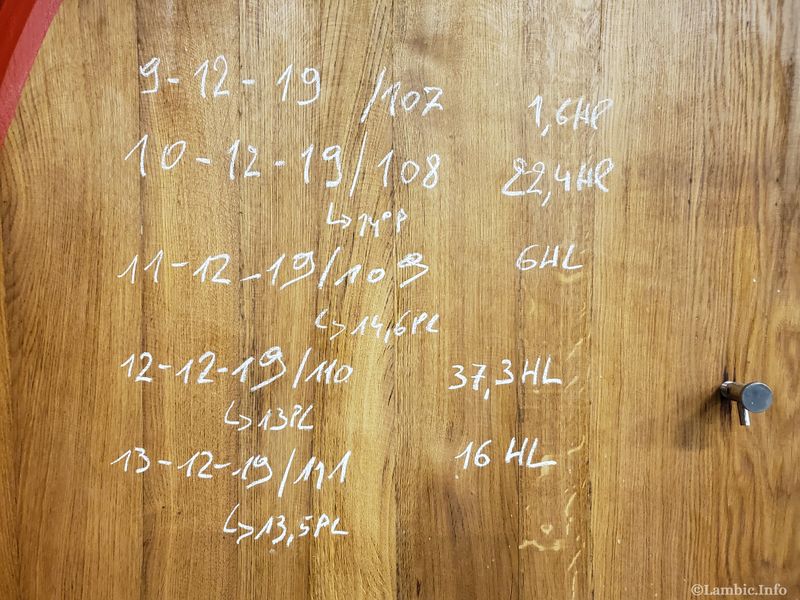 9-12-19 /107 1,6Hl
10-12-19/108 22,4Hl
↳14°P
11-12-19/109 6HL
↳14,6PL
12-12-19/110 37,3HL
↳13PL
13-12-19/111 16 HL
↳13,5PL
©Lambic.Info